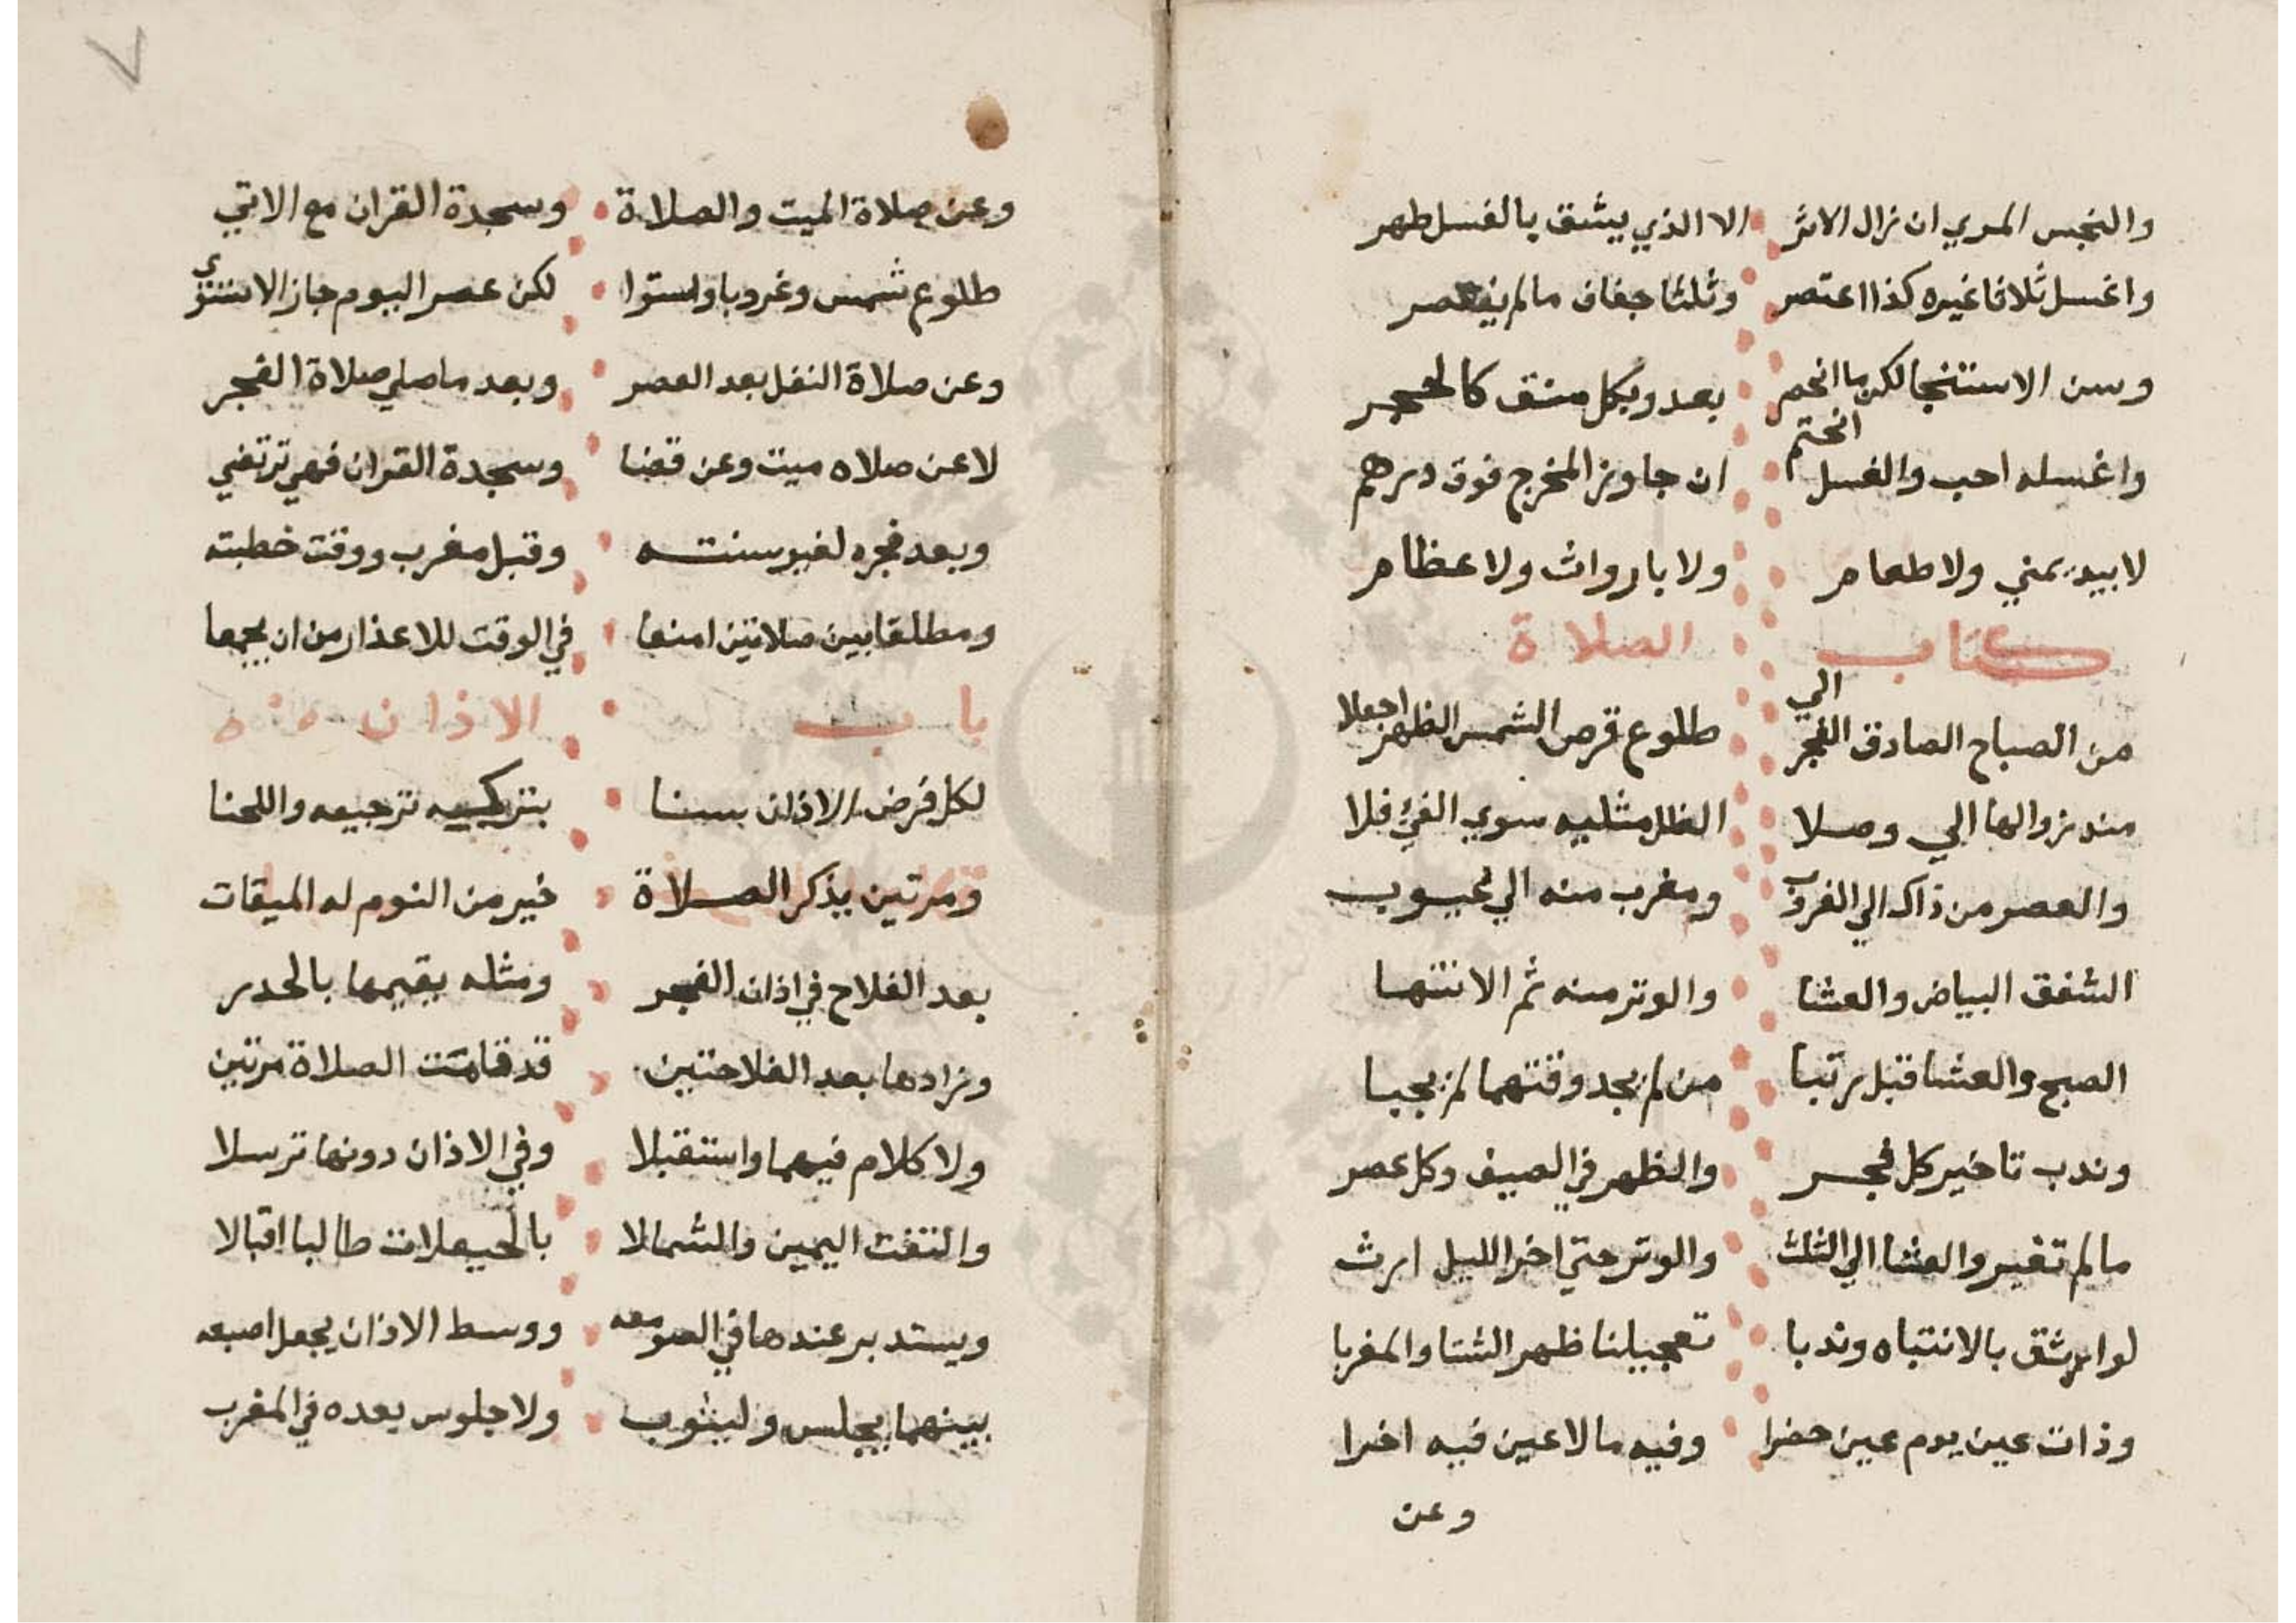 والنجس المري ان زال الاثر الا الذي يشق بالغسل طهر
واغسل ثلاثا غيره كذا اعتصر وثلثا جفاف مالم ينعصر
وسن الاستنجا لكن ما انحم بعد وبكل منق كالحجر
واغسله احب والغسل انحتم ان جاوز المخرج فوق درهم
لا بيد يمني ولا طعام ولا باروات ولا عظام
كتاب الصلاة
من الصباح الصادق الفجر الي طلوع قرص الشمس الظهر اجعلا
منذ زوالها الي وصلا الظل مثليه سوي الفئ فلا
والعصر من ذاك الي الغروب ومغرب منه الي غيوب
الشفق البياض والعشا والوتر منه ثم الانتها
الصبح والعشا قبل رتبا من لم يجد وقتهما لم يجبا
وندب تاخير كل فجر والظهر في الصيف وكل عصر
مالم تغير والعشا الي الثلث والوتر حتي اخر الليل ارث
لوا يثق بالانتباه وندبا تعجيلنا ظهر الشتا والمغربا
وذات عين يوم عين حضرا وفيه مالا عين فيه اخرا
وعن
٧
وعن صلاة الميت والصلاة وسجدة القران مع الاتي
طلوع شمس وغروبا واستوا لكن عصر اليوم جاز الاستوي
وعن صلاة النفل بعد العصر وبعد ما صلي صلاة الفجر
لا عن صلاه ميت وعن قضا وسجدة القران فهي ترتضي
وبعد فجره لغير سنته وقبل مغرب ووقت خطبته
ومطلقا بين صلاتين امنعا في الوقت للاعذار من ان يجمعا
باب الاذان
لكل فرض الاذان سنا بتركيه ترجيعه واللحنا
ومرتين يذكر الصلاة خير من النوم له الميقات
بعد الفلاح في اذان الفجر ومثله يقيمها بالحدر
وزادها بعد الفلاحتين قد قامت الصلاة مرتين
ولا كلام فيهما واستقبلا وفي الاذان دونها ترسلا
والتفت اليمين والشمالا بالحيعلات طالبا اقبالا
ويستدير عندها في الصومعه ووسط الاذان يجعل اصبعه
بينهما يجلس وليثوب ولا جلوس بعده في المغرب